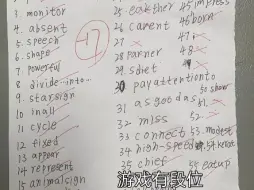 3. monitor
4. absent
5. speech
6. shape
7. powerful
8. divide…into…
9. starsign
10. inall
11. cycle
12. fixed
13. appear
14. represent
15. animalsign
-17
25 eakther
26 carent
27
28 Parner
29 sdiet
30 payattentionto
31 asgetdas
32 miss
33 connect
34 high-speed
35 chief
45 impress
46 born
47
48
49
50 show
51
52
53 modest
54
55 eatup
游戏有段位